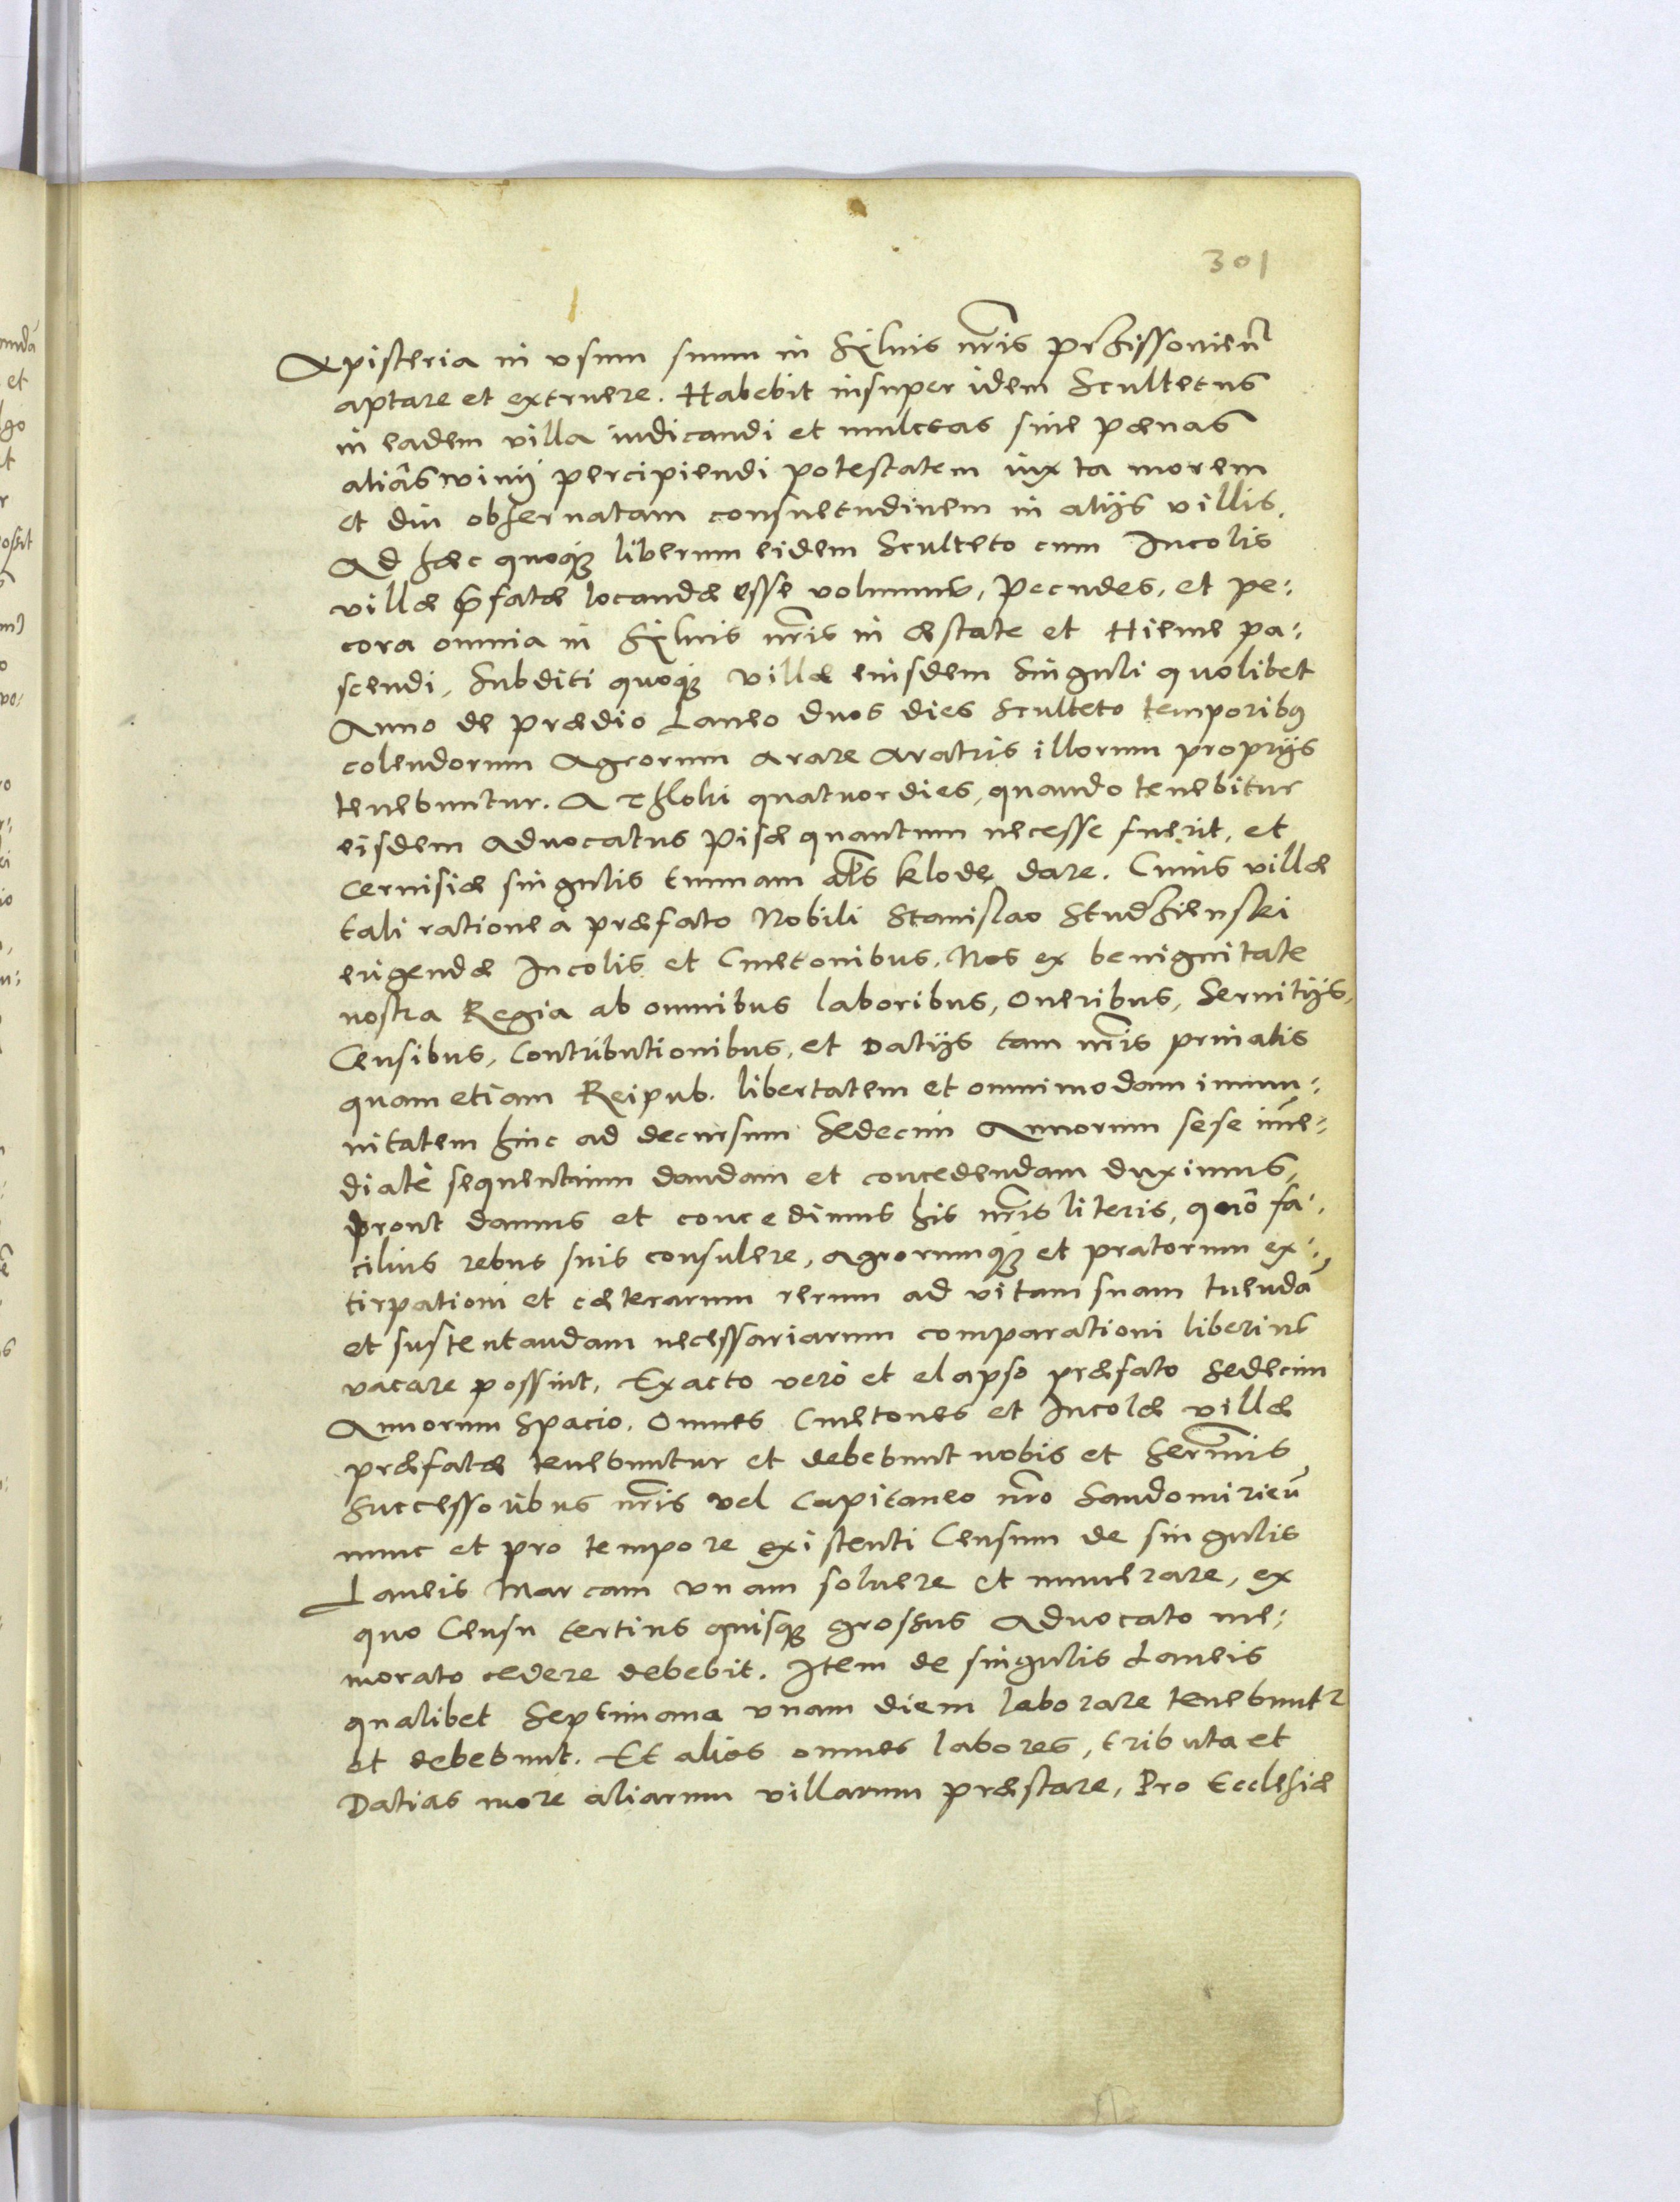 301
Apisteria in vsum suum in Sÿluis nr̃is przissouień
aptare et extruere. Habebit insuper idem Scultetus
in eadem villa iudicandi et mulctas siue pœnas
aliâs winÿ percipiendi potestatem iuxta morem
et diu obseruatam consuetudinem in alijs villis.
Ad hæc quoq; liberum eidem Sculteto cum Incolis
villæ p̃fatæ locandæ esse volumus, Pecudes, et pe:
cora omnia in Sÿluis nr̃is in æstate et Hieme pa:
scendi, Subditi quoq; villæ eiusdem Singuli quolibet
Anno de prædio Laneo duos dies Sculteto temporib9
colendorum Agrorum arare aratris illorum proprijs
tenebuntur. A Thloki quatuor dies, quando tenebitur
eisdem Aduocatus Pisæ quantum necesse fuerit, et
ceruisiæ singulis tunnam al̃s klodę dare. Cuius villæ
tali ratione à præfato Nobili Stanislao Studzienski
erigendæ Incolis et Cmetonibus. Nos ex benignitate
nostra Regia ab omnibus laboribus, Oneribus, Seruitijs,
Censibus, Contributionibus, et Datijs tam nr̃is priuatis
quam etiam Reipub. libertatem et omnimodam immu:
nitatem hinc ad decursum Sedecim Annorum sese im̃e:
diatè sequentium dandam et concedendam duximus,
prout damus et concedimus his nr̃is literis, quò fa:
cilius rebus suis consulere, Agrorumq; et pratorum ex:
tirpationi et cæterarum rerum ad vitam suam tuendã
et sustentandam necessariarum comparationi liberius
vacare possint, Exacto verò et elapso præfato Sedecim
Annorum Spacio. Omnes Cmetones et Incolæ villæ
præfatæ tenebuntur et debebunt nobis et Serm̃is
Successoribus nr̃is vel Capitaneo nr̃o Sandomirień
nunc et pro tempore existenti Censum de singulis
Laneis Marcam vnam soluere et numerare, ex
quo Censu tertius quisq; grossus Aduocato me:
morato cedere debebit. Item de singulis Laneis
qualibet Septimana vnam diem laborare tenebuntr
et debebunt. Et alios omnes labores, tributa et
Datias more aliarum villarum præstare, Pro Ecclesiæ